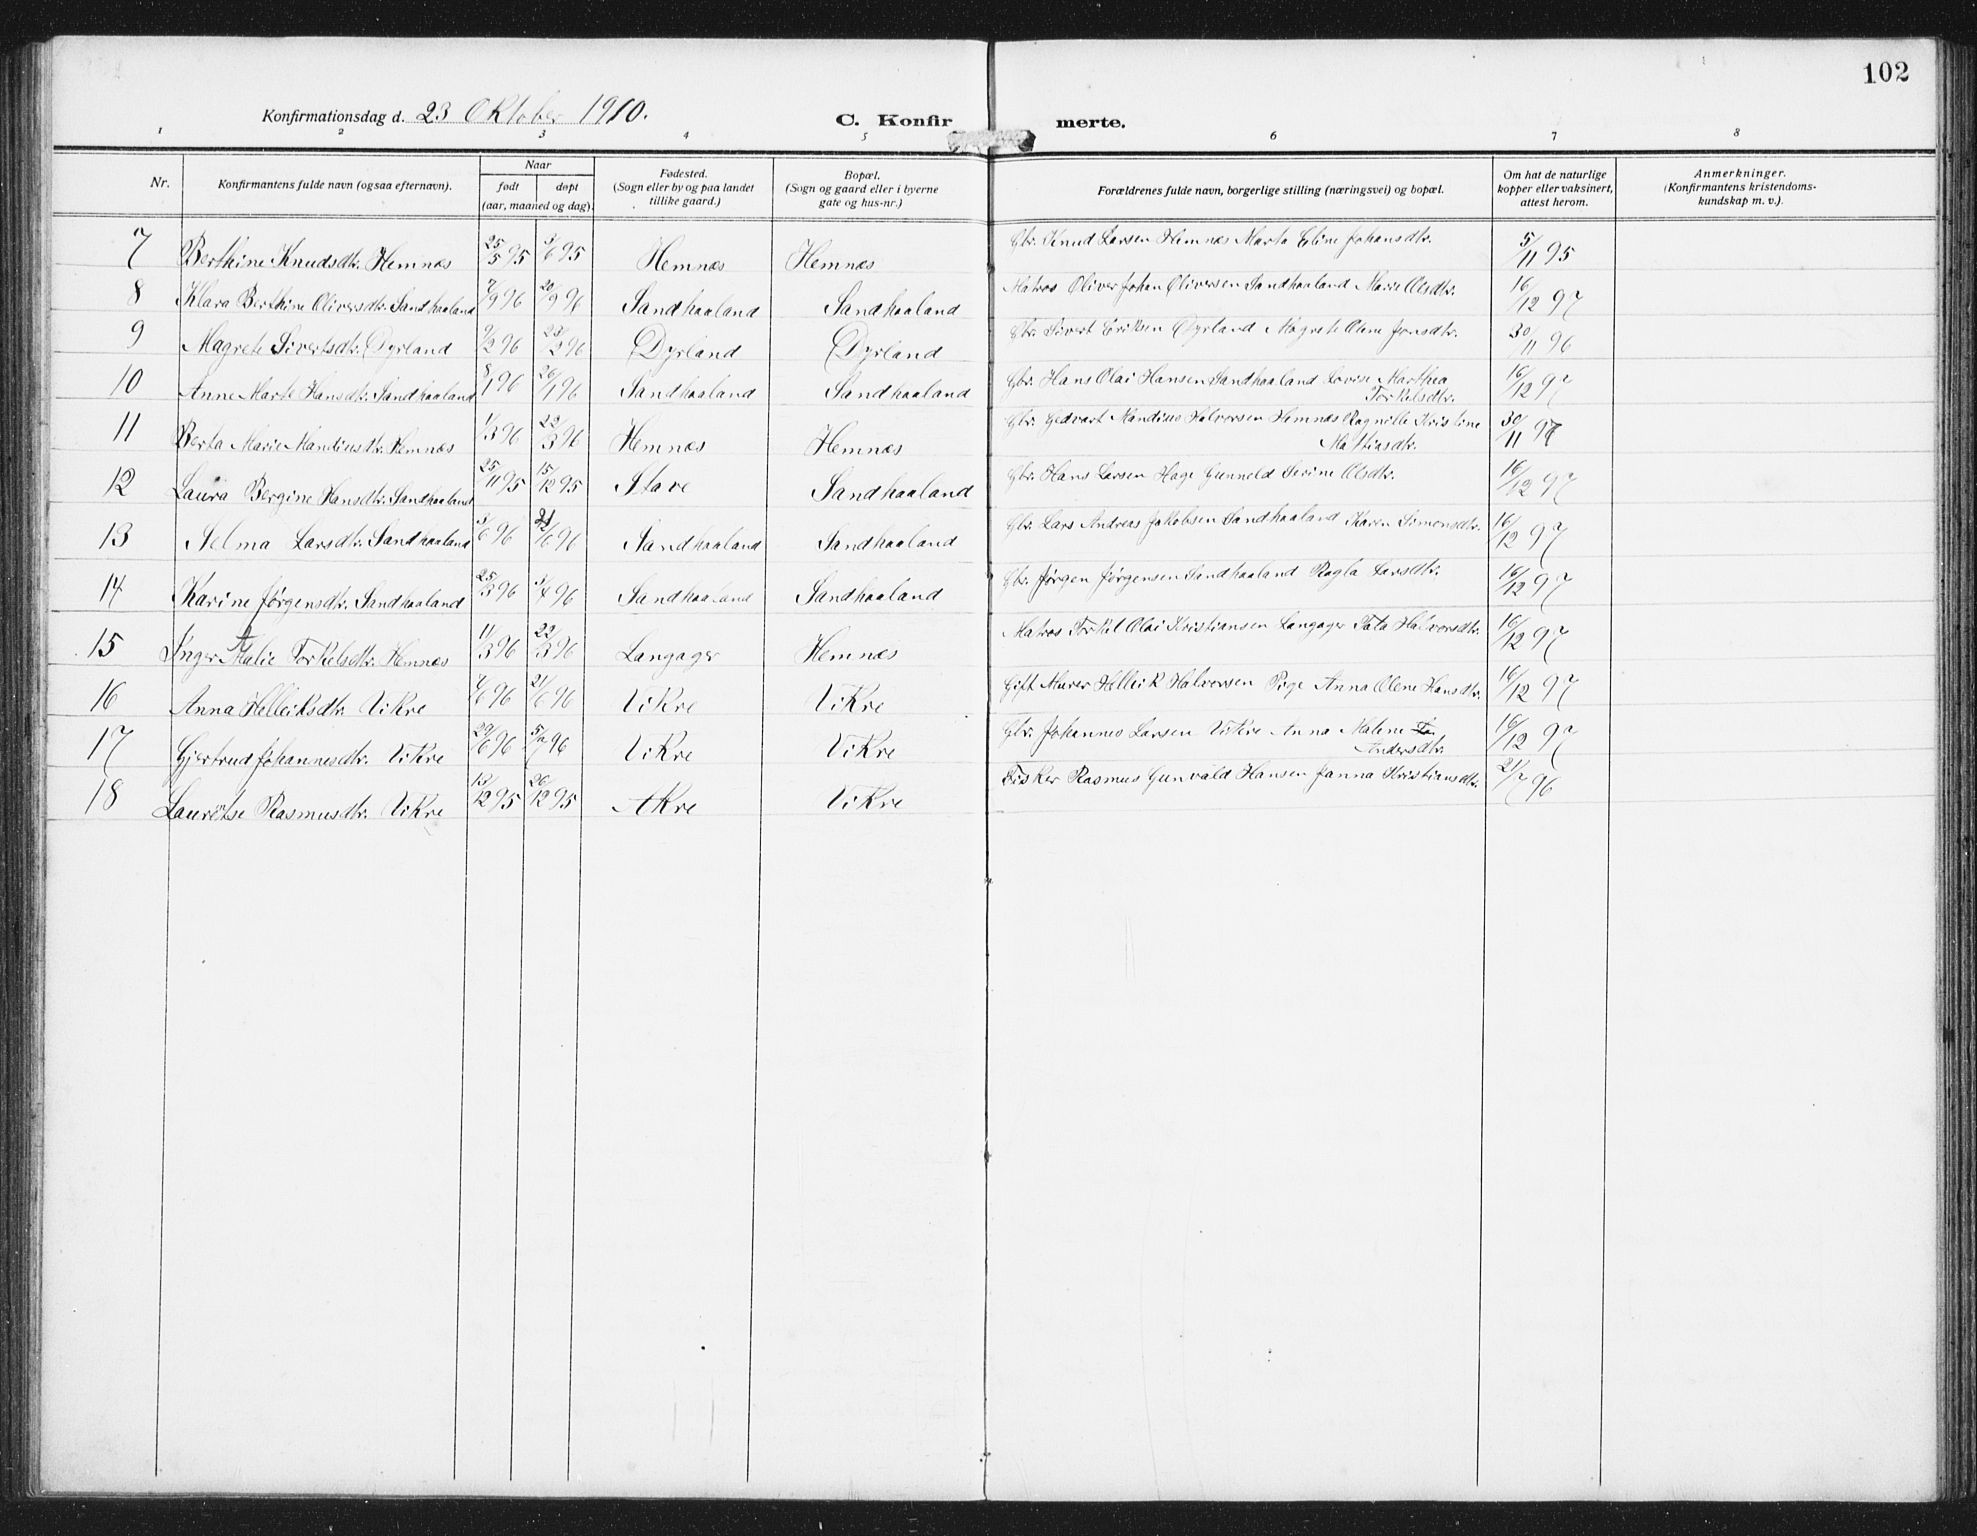 102
Konfirmationsdag d. 23 Oktober 1910. C. Konfirmerte.
1 2 3 4 5 6 7 8
Nr. Konfirmantens fulde navn (ogsaa efternavn). Naar født døpt (aar, maaned og dag). Fødested. (Sogn eller by og paa landet tillike gaard.) Bopæl. (Sogn og gaard eller i byerne gate og hus-nr.) Forældrenes fulde navn, borgerlige stilling (næringsvei) og bopæl. Om hat de naturlige kopper eller vaksinert, attest herom. Anmerkninger. (Konfirmantens kristendoms- kundskap m. v.).
7 Berthine Knudsdtr. Hemnæs 25/5 95 3/6 95 Hemnæs Hemnæs Gbr. Knud Larsen Hemnæs Marta Eline Johansdtr. 5/11 95
8 Klara Berthine Oliversdtr. Sandhaaland 7/9 96 20/9 96 Sandhaaland Sandhaaland Matros Oliver Johan Oliversen Sandhaaland Marie Olsdtr. 16/12 97
9 Magrete Sivertsdtr. Dyrland 9/2 96 23/2 96 Dyrland Dyrland Gbr. Sivert Eriksen Dyrland Magrete Olene Jonsdtr. 30/11 96
10 Anne Marte Hansdtr. Sandhaaland 8/1 96 26/1 96 Sandhaaland Sandhaaland Gbr. Hans Olai Hansen Sandhaaland Lovise Marthea
Torkelsdtr. 16/12 97
11 Berta Marie Mandiusdtr. Hemnæs 1/3 96 22/3 96 Hemnæs Hemnæs Gbr. Gedvart Mandius Halvorsen Hemnæs Ragnille Kristine
Mathiasdtr. 30/11 97
12 Laura Bergine Hansdtr. Sandhaaland 25/11 95 15/12 95 Stave Sandhaaland Gbr. Hans Larsen Hage Gunneld Serine Olsdtr. 16/12 97
13 Selma Larsdtr. Sandhaaland 3/6 96 21/6 96 Sandhaaland Sandhaaland Gbr. Lars Andreas Jakobsen Sandhaaland Karen Simonsdtr. 16/12 97
14 Karine Jørgensdtr. Sandhaaland 25/3 96 3/4 96 Sandhaaland Sandhaaland Gbr. Jørgen Jørgensen Sandhaaland Ragla Larsdtr. 16/12 97
15 Inger Malie Torkelsdtr. Hemnæs 11/3 96 22/3 96 Langager Hemnæs Matros Torkel Olai Kristiansen Langager Tala Halvorsdtr. 16/12 97
16 Anna Helleiksdtr. Vikre 7/6 96 21/6 96 Vikre Vikre Gift Murer Helleik Halvorsen Pige Anna Olene Hansdtr. 16/12 97
17 Gjertrud Johannesdtr. Vikre 29/6 96 5/7 96 Vikre Vikre Gbr. Johannes Larsen Vikre Anna Malene
Andersdtr. 16/12 97
18 Lauretse Rasmusdtr. Vikre 13/12 95 26/12 95 Akre Vikre Fisker Rasmus Gunvald Hansen Janna Kristiansdtr. 21/7 96